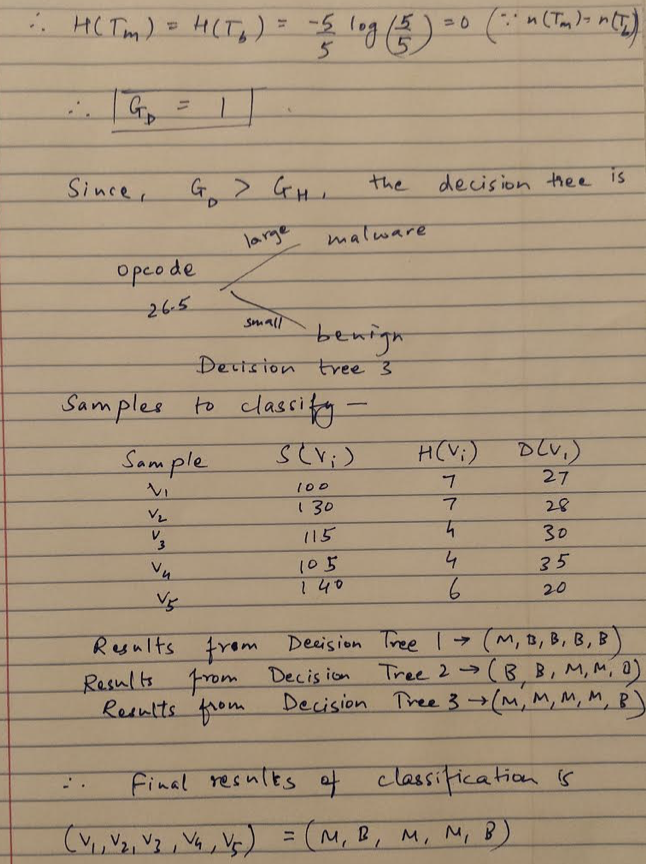 ∴ H(Tm) = H(Tb) = -5/5 log (5/5) = 0 (∵ n(Tm) = n(Tb)
∴ GD = 1
Since, GD > GH, the decision tree is
large malware
opcode
26.5
small benign
Decision tree 3
Samples to classify —
Sample S(Vi) H(Vi) D(Vi)
V1 100 7 27
V2 130 7 28
V3 115 4 30
V4 105 4 35
V5 140 6 20
Results from Decision Tree 1 → (M, B, B, B, B)
Results from Decision Tree 2 → (B, B, M, M, B)
Results from Decision Tree 3 → (M, M, M, M, B)
∴ Final results of classification is
(V1, V2, V3, V4, V5) = (M, B, M, M, B)